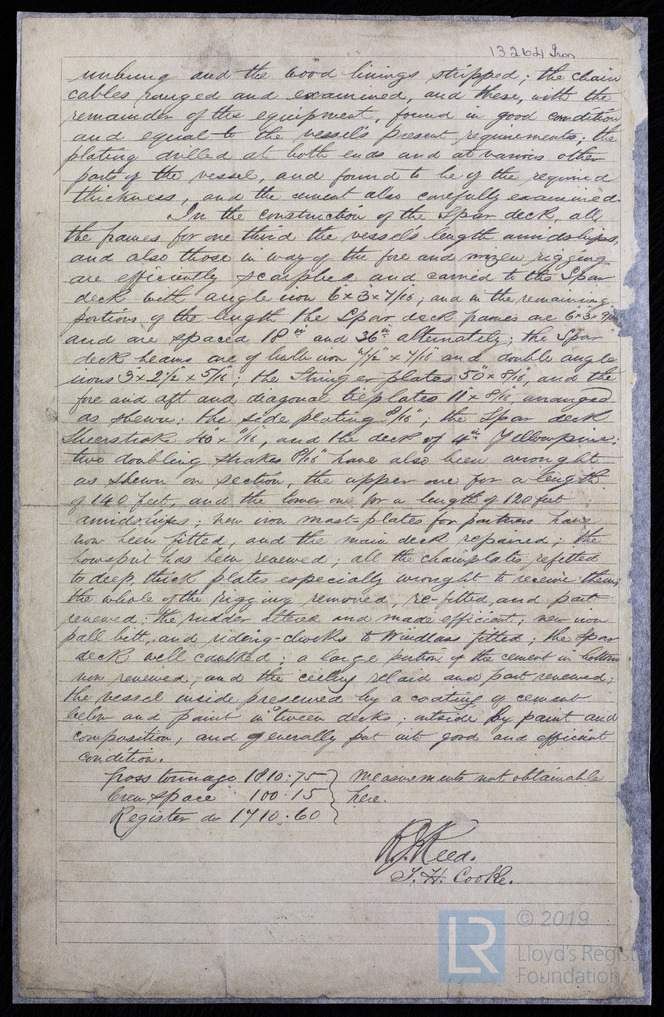 13264 Iron
unhung and the wood linings stripped; the chain
cables ranged and examined, and these, with the
remainder of the equipment, found in good condition
and equal to the vessel's present requirements; the
plating drilled at both ends and at various other
parts of the vessel, and found to be of the required
thickness, and the cement also carefully examined.
In the construction of the Spar deck, all
the frames for one third the vessel's length amidships,
and also those in way of the fore and mizen rigging
are efficiently scarphed and carried to the Spar
deck with angle iron 6 x 3 x 7/16; and in the remaining
portions of the length the Spar deck frames are 6 x 3 x
and are spaced 18 in and 36 in alternately; the Spar
deck beams are of bulb iron 7 1/2" x 7/16 and double angle
irons 3 x 2 1/2 x 5/16; the Stringer plates 50" x 8/16, and the
fore and aft and diagonal tieplates 11" x 8/16 arranged
as shewn; the side plating 8/16"; the Spar deck
Sheerstrake 40" x /16, and the deck of 4 in Yellowpine;
two doubling strakes 8/16" have also been wrought
as shewn on section, the upper one for a length
of 140 feet, and the lower one for a length of 120 feet
amidships; new iron mast-plates for partners have
now been fitted, and the main deck repaired; the
bowsprit has been renewed; all the chainplates refitted
to deep, thick plates especially wrought to receive them,
the whole of the rigging removed, re-fitted, and part
renewed; the rudder altered and made efficient; new iron
pall bitt, and riding-chocks to Windlass fitted; the Spar
deck well caulked; a large portion of the cement in bottom
now renewed; and the ceiling relaid and part renewed;
the vessel inside preserved by a coating of cement
below and paint in 'tween decks; outside by paint and
composition, and generally put into good and efficient
condition.
Gross tonnage 1810.75 } Measurements not obtainable
Crew space 100.15 } here.
Register do 1710.60 }
R. J. Reed.
T. H. Cooke.
LR © 2019
Lloyd's Register
Foundation